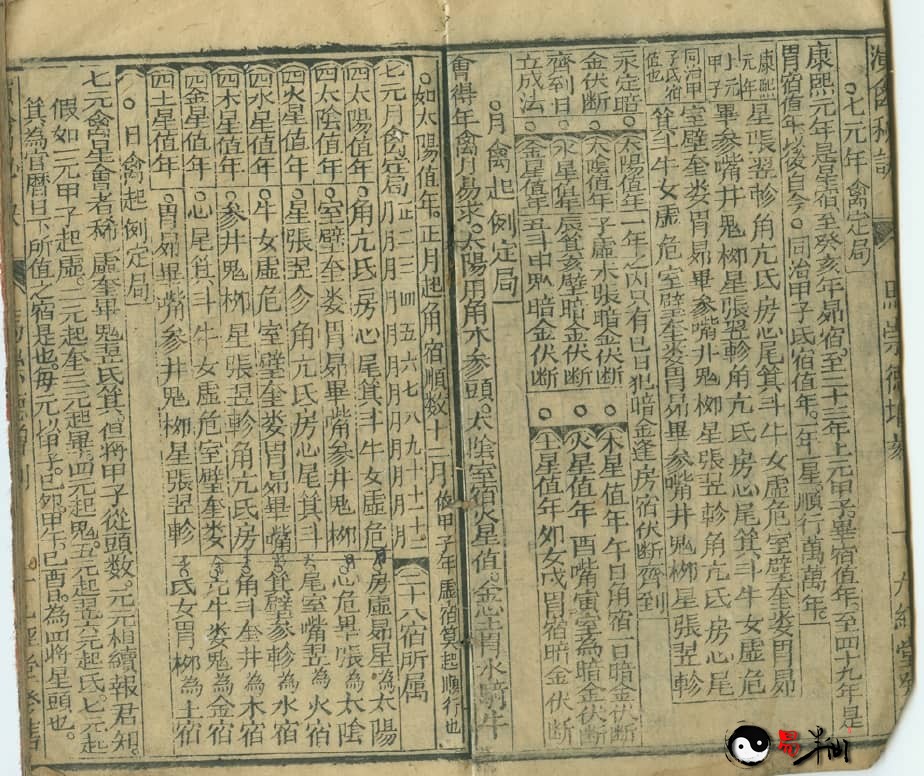 ○七元年禽定局
康熙元年是星宿至癸亥年昴宿。至二十三年上元甲子。畢宿值年。至四十九年是
胃宿值年。以後自今。○同治甲子氐宿值年。一年一星。順行萬萬年。
康熙元年
星張翌軫角亢氐房心尾箕斗牛女虛危室壁奎婁胃昴
下元甲子
畢參嘴井鬼柳星張翌軫角亢氐房心尾箕斗牛女虛危
同治甲子氐宿值也
室壁奎婁胃昴畢參嘴井鬼柳星張翌軫角亢氐房心尾
箕斗牛女虛危室壁奎婁胃昴畢參嘴井鬼柳星張翌軫
永定暗金伏断齊到日立成法
○太陽值年一年之内只有巳日犯暗金逢房宿伏断齊到
○太陰值年子虛未張暗金伏断
○水星值年辰箕亥壁暗金伏断
○金星值年丑斗申鬼暗金伏断
○木星值年午日用宿一日暗金伏断
○火星值年酉嘴寅室為暗金伏断
○土星值年夘女戌胃宿暗金伏断
○月禽起例定局
會得年禽月易求。太陽用角木參頭。太陰室宿火星值。金心土胃水騎牛
○如太陽值年。正月起角宿順數十二月
七元月禽定局 正月二月三月四月五月六月七月八月九月十月十一十二
四太陽值年○角亢氐房心尾箕斗牛女虛危
四太陰值年○室壁奎婁胃昴畢嘴參井鬼柳
四火星值年○星張翌軫角亢氐房心尾箕斗
四水星值年○牛女虛危室壁奎婁胃昴畢嘴
四木星值年○參井鬼柳星張翌軫角亢氐房
四金星值年○心尾箕斗牛女虛危室壁奎婁
四土星值年○胃昴畢嘴參井鬼柳星張翌軫
二十八宿所属
房虛昴星為太陽
心危畢張為太陰
尾室嘴翌為火宿
箕壁參軫為水宿
角斗奎井為木宿
亢牛婁鬼為金宿
氐女胃柳為土宿
○日禽起例定局
七元禽星會者稀。虛奎畢鬼翌氐箕。但將甲子從頭數。元元相續報君知。
假如一元甲子起虛。二元起奎。三元起畢。四元起鬼。五元起翌。六元起氐。七元起
箕為官曆日下所值之宿是也。每元以甲子。己夘。甲午。己酉。為四將星頭也。